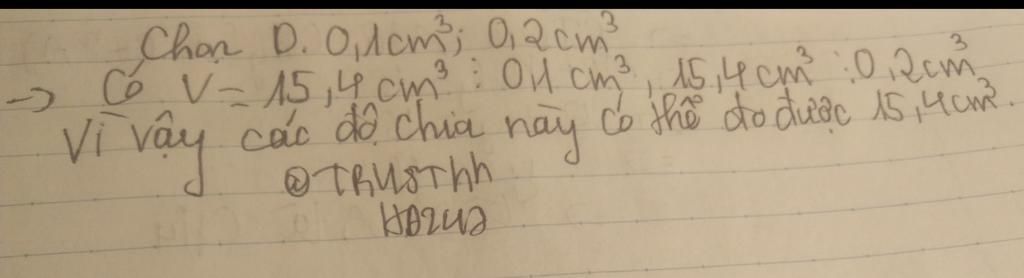 Chọn D. 0,1cm³; 0,2cm³
→ Có V = 15,4cm³ : 0,1 cm³, 15,4cm³ : 0,2cm³
Vì vậy các độ chia này có thể đo được 15,4cm³.
@TRUSThh